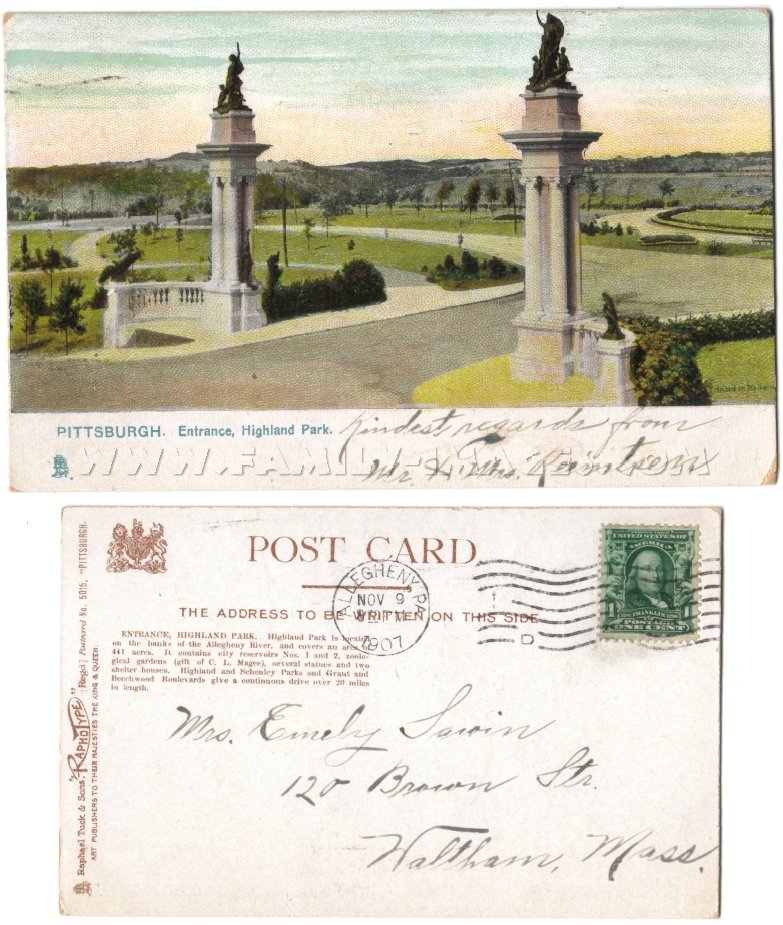 Printed in Holland
PITTSBURGH. Entrance, Highland Park.
Kindest regards from
Mr. & Mrs.
WWW.FAMILY-IMAGES.COM
POST CARD
THE ADDRESS TO BE WRITTEN ON THIS SIDE
ALLEGHENY, PA.
NOV 9
1907
D
UNITED STATES OF
AMERICA
1 FRANKLIN 1790 1
POSTAGE
ONE CENT
ENTRANCE, HIGHLAND PARK. Highland Park is located
on the banks of the Allegheny River, and covers an area of
441 acres. It contains city reservoirs Nos. 1 and 2, zoolo-
gical gardens (gift of C. L. Magee), several statues and two
shelter houses. Highland and Schenley Parks and Grant and
Beechwood Boulevards give a continuous drive over 20 miles
in length.
Mrs. Emely Sawin
120 Brown Str.
Waltham, Mass.
Raphael Tuck & Sons' "RAPHOTYPE" [Regd.] Postcard No. 5015, "PITTSBURGH."
ART PUBLISHERS TO THEIR MAJESTIES THE KING & QUEEN.